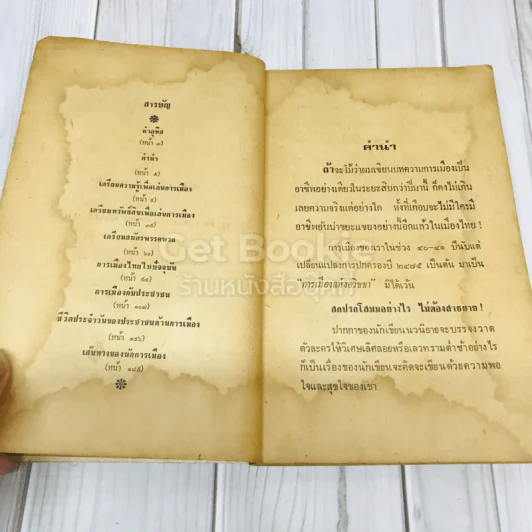 สารบัญ
คำอุทิศ
(หน้า ๓)
คำนำ
(หน้า ๕)
เตรียมความรู้เพื่อเล่นการเมือง
(หน้า ๙)
เตรียมทรัพย์สินเพื่อเล่นการเมือง
เตรียมสมัครพรรคพวก
การเมืองไทยในปัจจุบัน
การเมืองกับประชาชน
(หน้า ๑๐๗)
ชีวิตประจำวันของประชาชนด้านการเมือง
เส้นทางของนักการเมือง
คำนำ
ถ้าจะไม้ว่าผมเขียนบทความการเมืองเป็น
อาชีพอย่างเดียวในระยะสิบกว่าปีมานี้ ก็คงไม่เกิน
เลยความจริงแต่อย่างใด ทั้งที่เกือบจะไม่มีใครมี
อาชีพอันน่าขยะแขยงอย่างนี้อีกแล้วในเมืองไทย!
การเมืองของเราในช่วง ๔๐-๔๑ ปีนับแต่
เปลี่ยนแปลงการปกครองปี ๒๔๗๕ เป็นต้น มาเป็น
การเมืองแห่งอวิชชา มิได้เว้น
สกปรกโสมมอย่างไร ไม่ต้องสาธยาย!
ปากกาของนักเขียนนวนิยายจะบรรจงวาด
ตัวละครให้วิเศษเลิศลอยหรือเลวทรามต่ำช้าอย่างไร
ก็เป็นเรื่องของนักเขียนจะคิดจะเขียนด้วยความพอ
ใจและสุขใจของเขา
Get Bookie
ร้านหนังสือลุกกี้